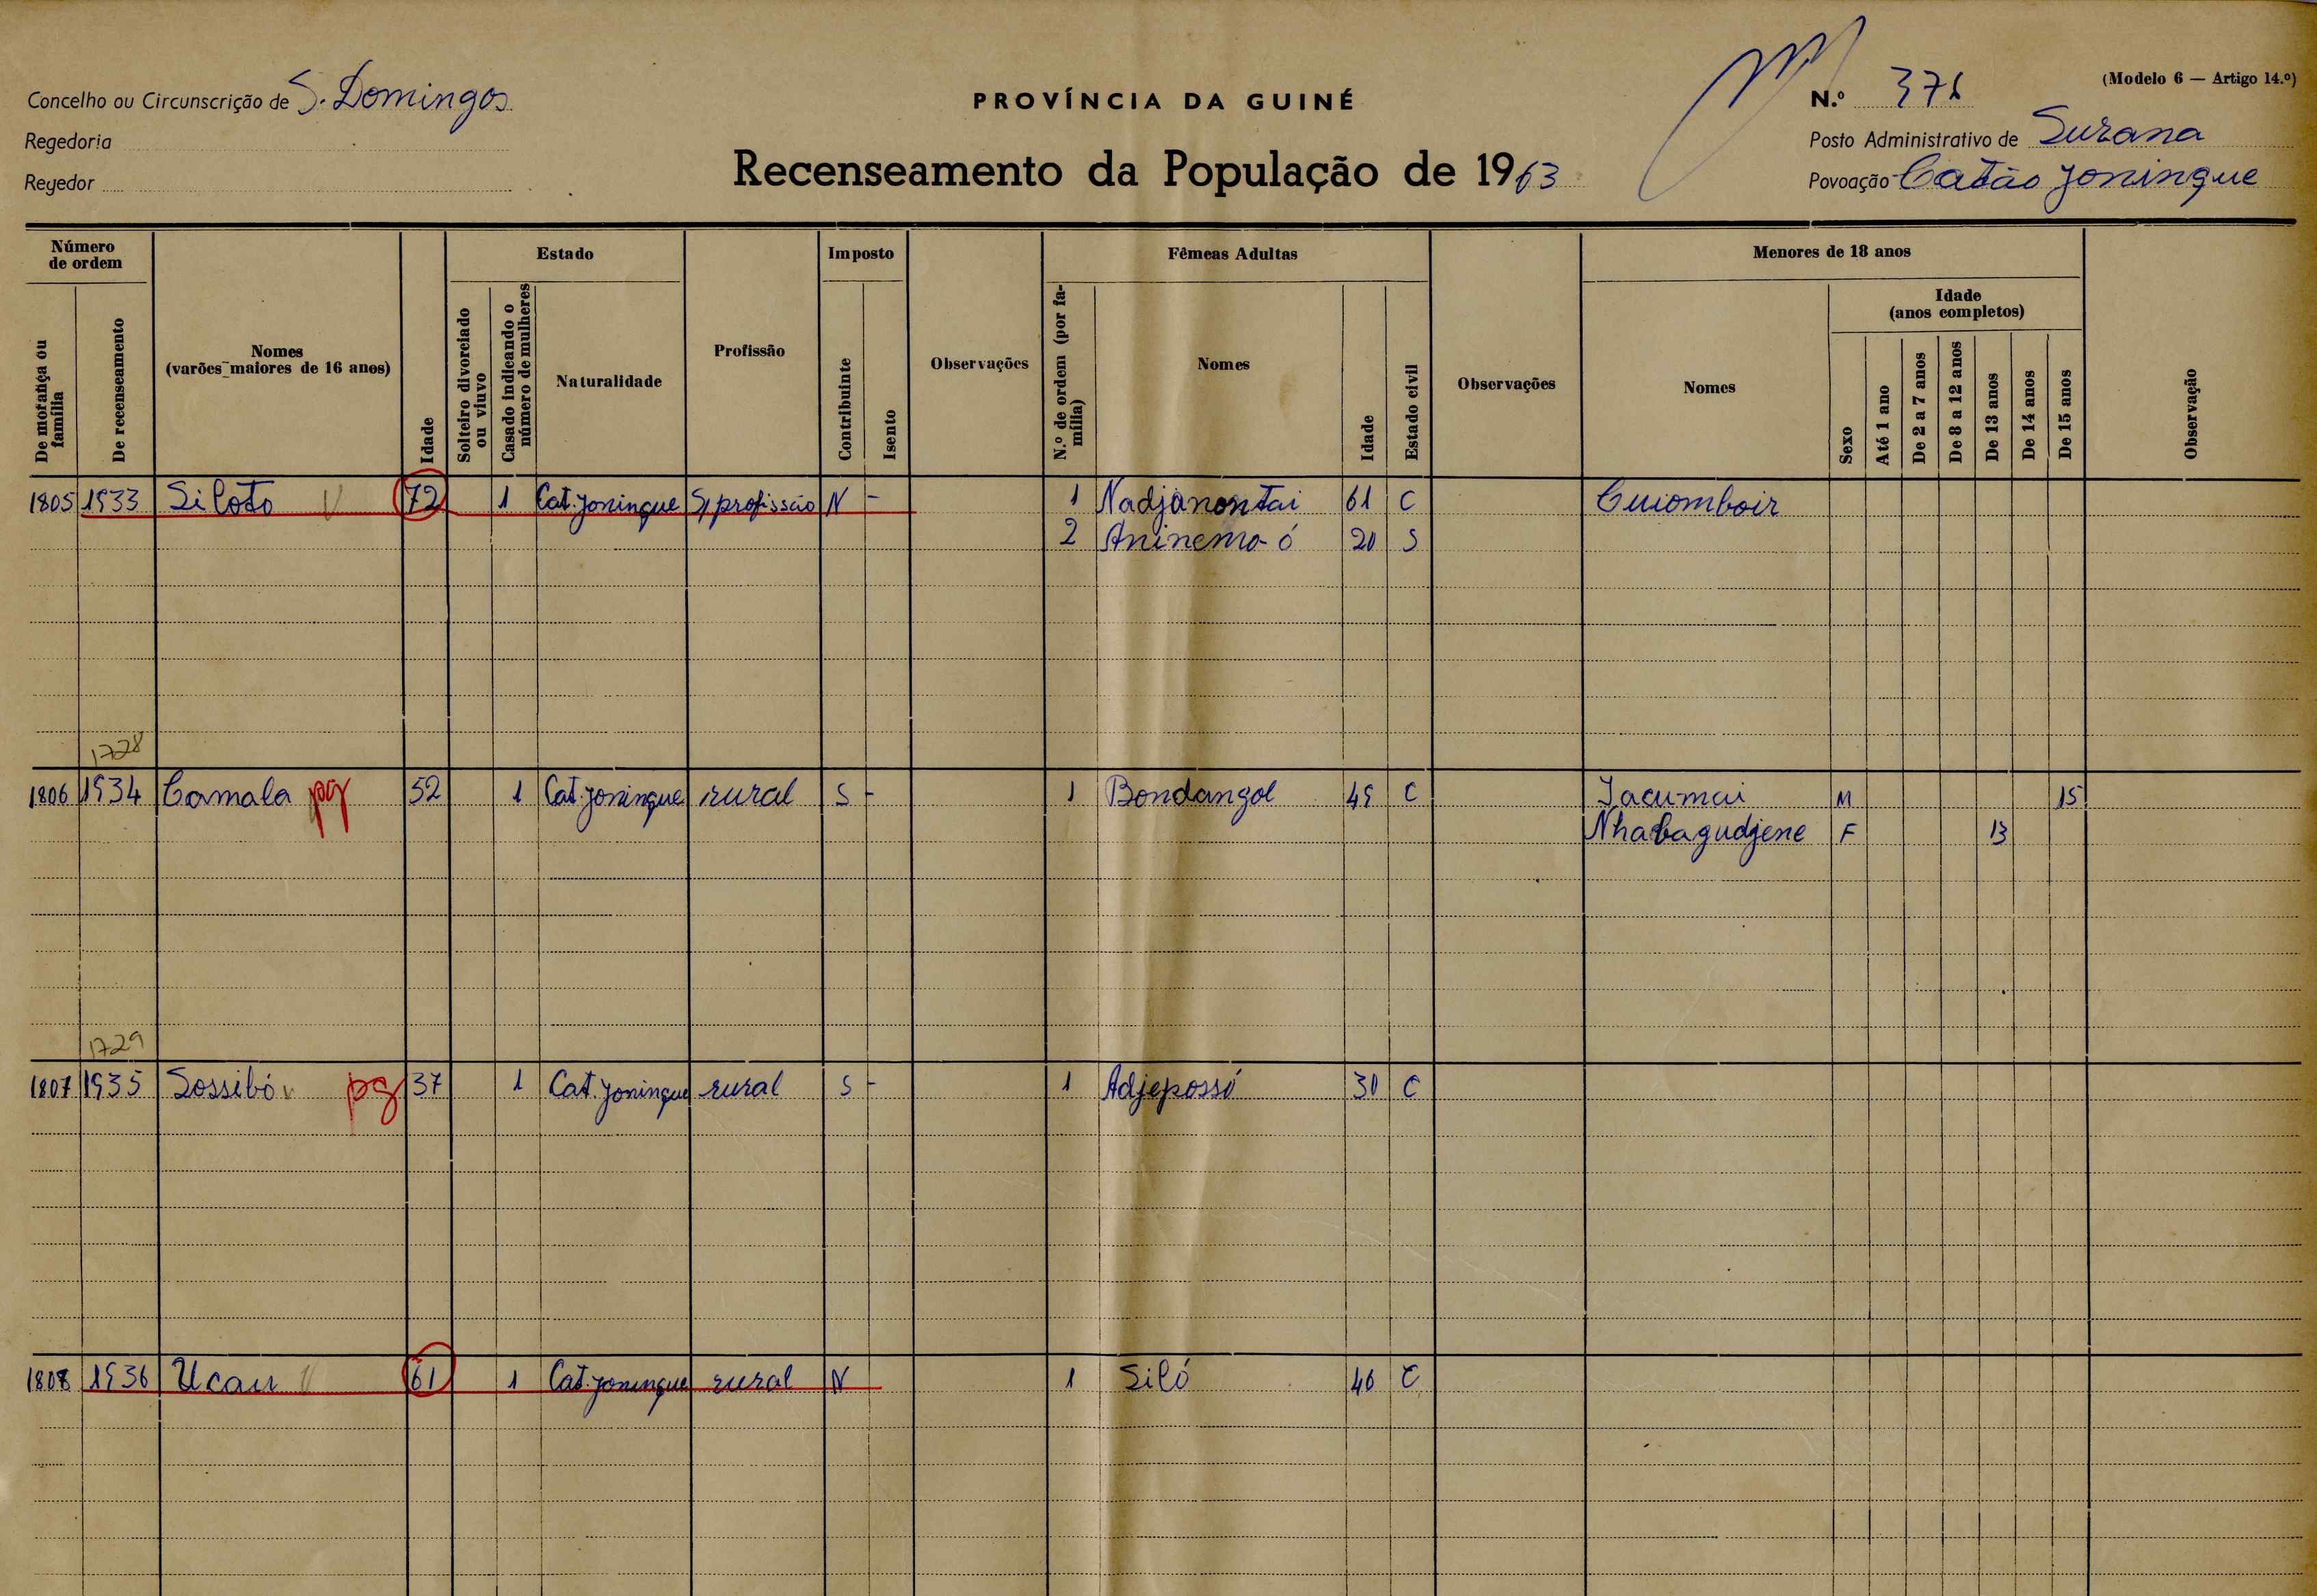 (Modelo 6 — Artigo 14.º)
Concelho ou Circunscrição de S. Domingos
PROVÍNCIA DA GUINÉ
N.º
Regedoria
Posto Administrativo de Suzana
Regedor
Recenseamento da População de 1963
Povoação Catão Joningue
Número de ordem
Estado
Imposto
Fêmeas Adultas
Menores de 18 anos
De morança ou família
De recenseamento
Nomes
(varões maiores de 16 anos)
Idade
Solteiro divorciado ou viuvo
Casado indicando o número de mulheres
Naturalidade
Profissão
Contribuinte
Isento
Observações
N.º de ordem (por família)
Nomes
Idade
Estado civil
Observações
Nomes
Sexo
Idade
(anos completos)
Até 1 ano
De 2 a 7 anos
De 8 a 12 anos
De 13 anos
De 14 anos
De 15 anos
Observação
1805 1933 Siloto V 72 1 Cat. Joningue S/ profissão N - 1 Nadjanontai 61 C Cuiomboir
2 Aninema-ó 20 S
1728
1806 1934 Camala pg 52 1 Cat. Joningue rural S - 1 Bondangol 49 C Jacumai M 15
Nhabagudjene F 13
1729
1807 1935 Sossibó pg 37 1 Cat. Joningue rural S - 1 Adjepossó 30 C
1808 1936 Ucau V 61 1 Cat. Joningue rural N 1 Siló 46 C